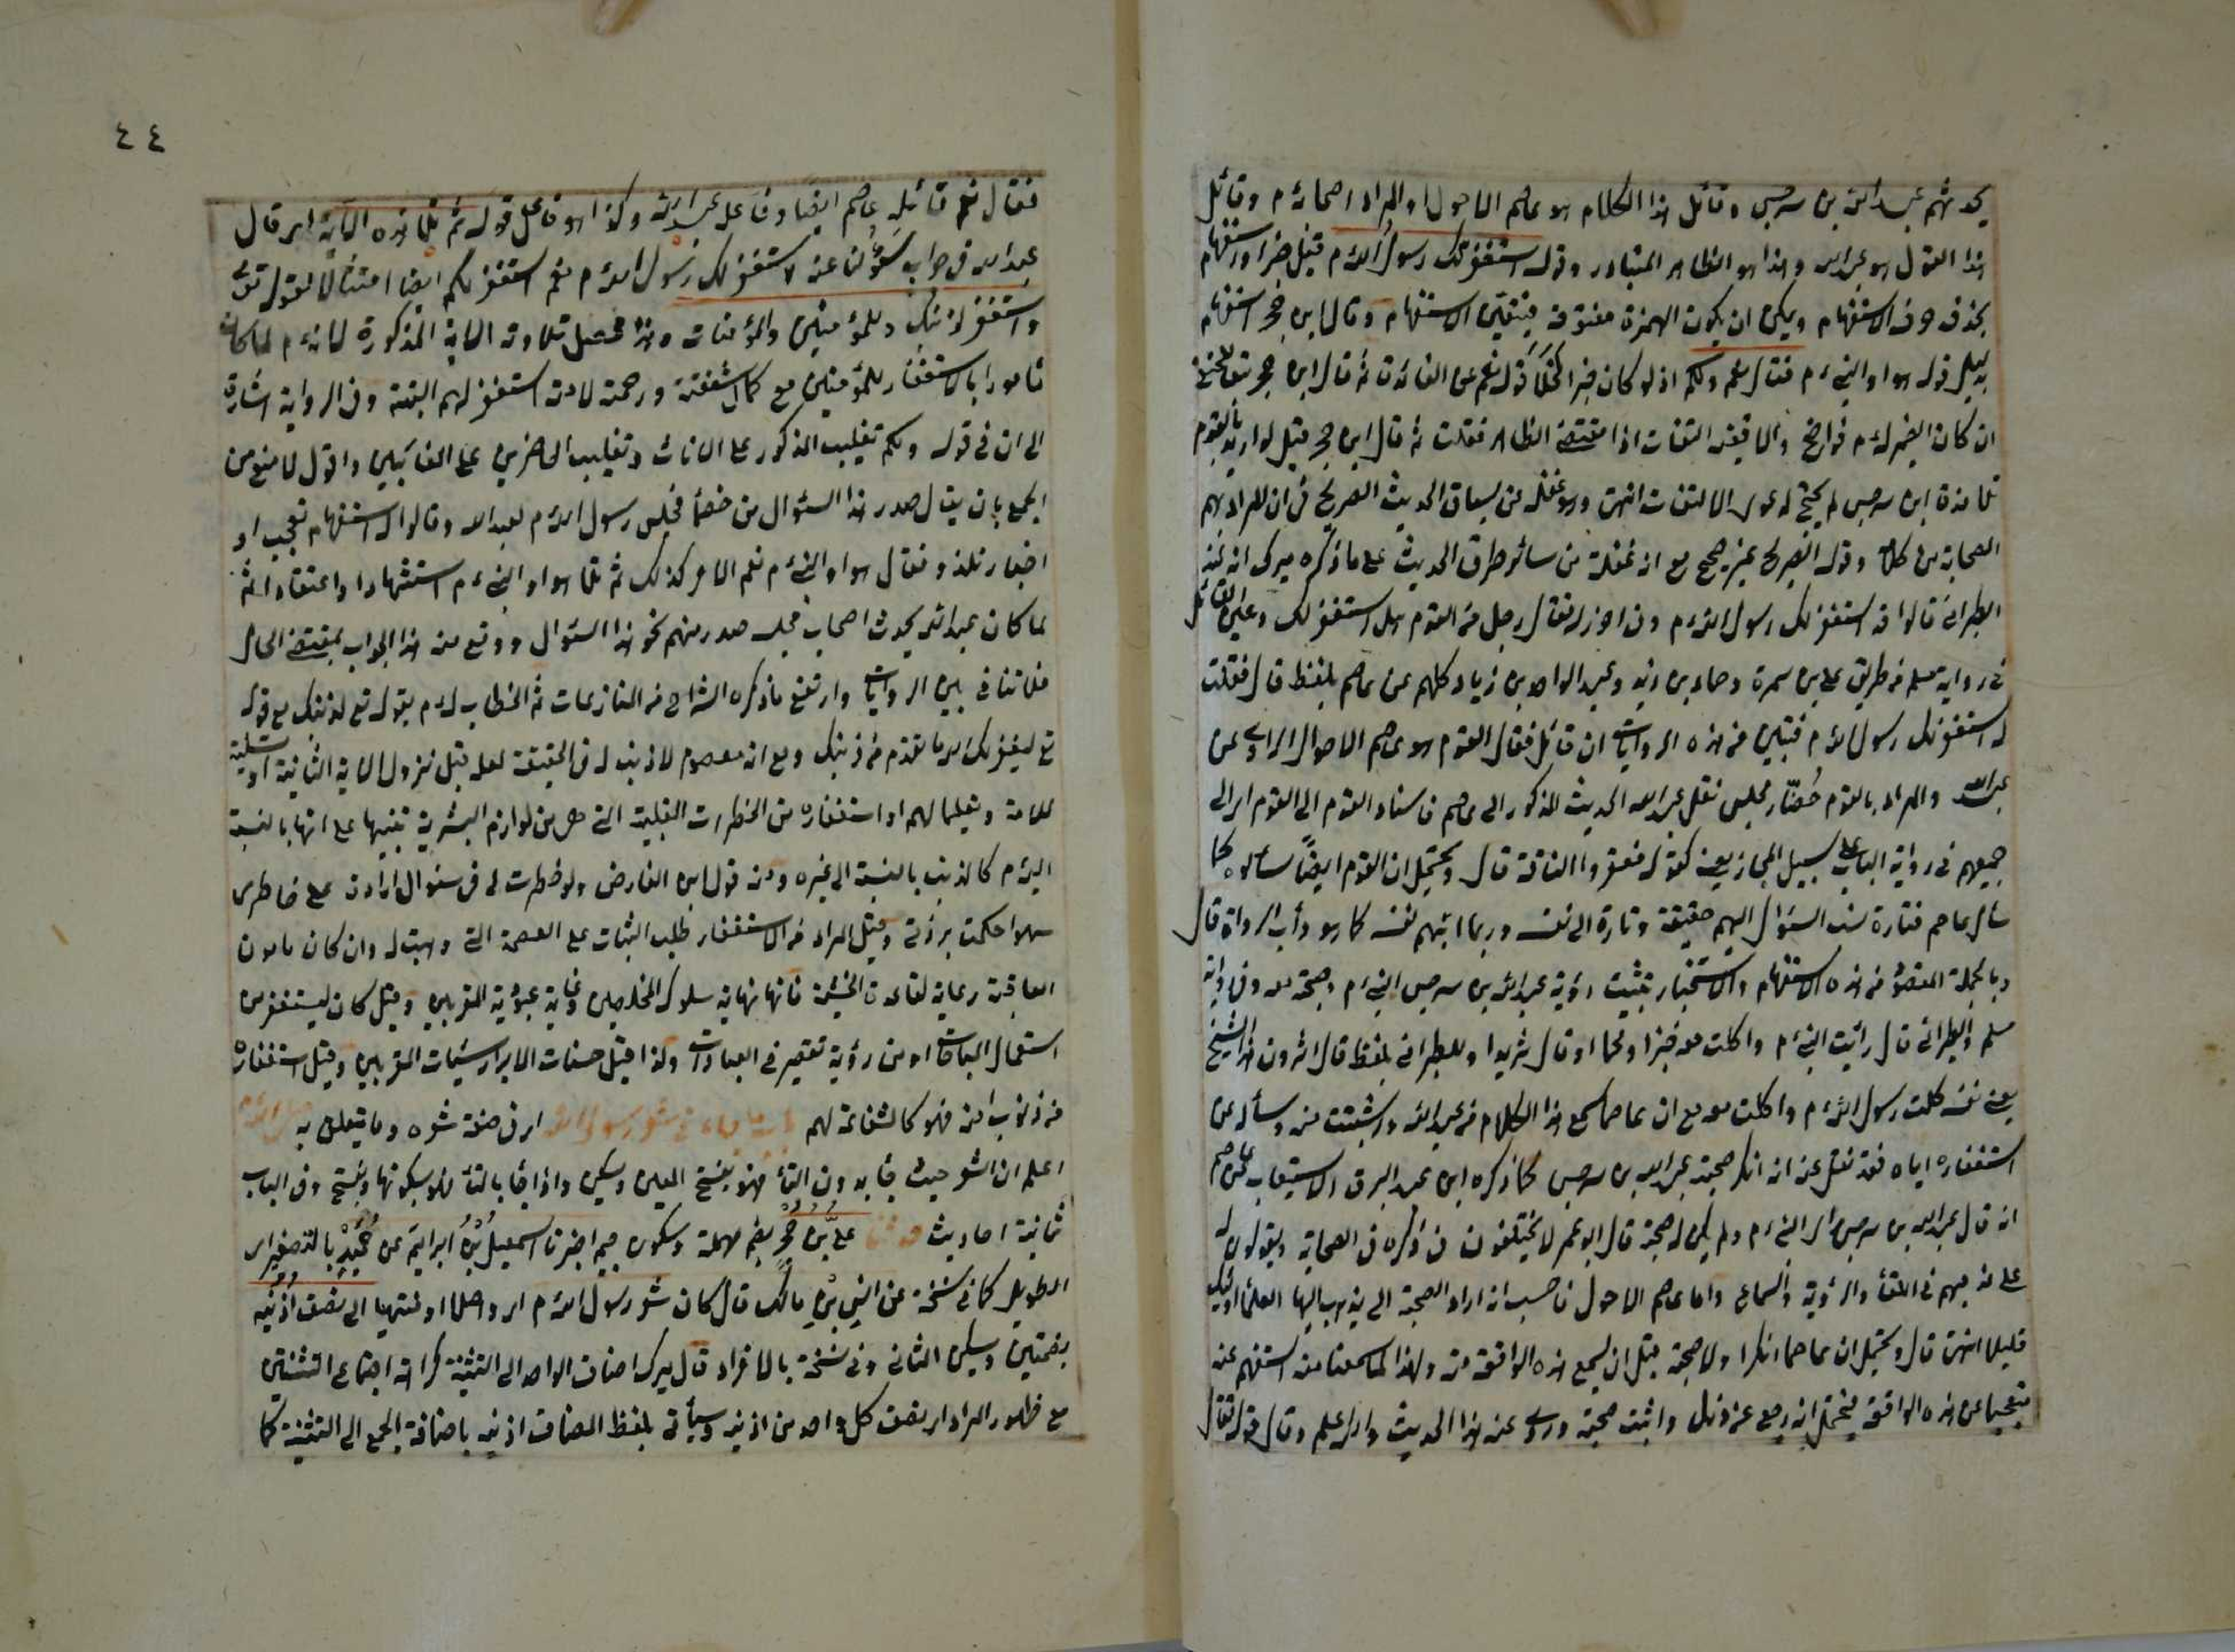 يحدثهم عبد الله بن سرجس وقائل هذا الكلام هو عاصم الاحول او المراد اصحابه م وقائل
هذا القول هو عبد الله وهذا هو الظاهر المتبادر وقوله استغفر لك رسول الله م قيل خبر او استفهام
بحذف حرف الاستفهام ويمكن ان يكون الهمزة مفتوحة فيتعين الاستفهام وقال ابن حجر استفهام
بدليل قوله هو او النبي م فقال نعم ولكم اذ لو كان خبرا لخلا قوله نعم عن الفائدة ثم قال ابن حجر
ان كان الضمير له م فواضح والا ففيه التفات اذ مقتضى الظاهر فقلت ثم قال ابن حجر قيل لو اريد بالقوم
تلامذة ابن سرجس لم يحتج لدعوى الالتفات انتهى وهو غفلة عن سياق الحديث الصريح في ان المراد بهم
الصحابة من كلامه وقوله الصريح غير صحيح مع انه غفلة من سائر طرق الحديث على ما ذكره ميرك انه عند
الطبراني قالوا قد استغفر لك رسول الله م وفي اخرى له فقال رجل من القوم هل استغفر لك
في رواية مسلم من طريق علي بن مسهر وحماد بن زيد وعبد الواحد بن زياد كلهم عن عاصم بلفظ قال فقلت
له استغفر لك رسول الله م فتبين من هذه الروايات ان قائل فقال القوم هو عاصم الاحول الراوي عن
عبد الله والمراد بالقوم حضار مجلس نقل عبد الله الحديث المذكور الى عاصم فاسناد القوم الى القوم اى الى
جميعهم في رواية الباب على سبيل المجاز يعني كقوله فعقروا الناقة قال ويحتمل ان القوم ايضا سألوه كما
سأل عاصم فتارة نسب السؤال اليهم حقيقة وتارة الى نفسه وربما ابهم نفسه كما هو دأب الرواة قال
وبالجملة المقصود من هذه الاستفهام والاستخبار تثبيت رؤية عبد الله بن سرجس النبي م وصحبته معه وفي رواية
مسلم والطبراني قال رأيت النبي م واكلت معه خبزا ولحما او قال ثريدا وللطبراني بلفظ قال اترون هذا الشيخ
يعني نفسه كلمت رسول الله م واكلت معه مع ان عاصما سمع هذا الكلام من عبد الله واستثبت منه وسأله عن
استغفاره اياه فقد نقل عنه انه انكر صحبة عبد الله بن سرجس كما ذكره ابن عبد البر في الاستيعاب عن عاصم
انه قال عبد الله بن سرجس رأى النبي م ولم يكن له صحبة قال ابو عمر لا يختلفون في ذكره في الصحابة ويقولون له
على مذهبهم في اللقاء والرؤية والسماع واما عاصم الاحول فاحسب انه اراد الصحبة التي يذهب اليها العلماء واولئك
قليل انتهى قال ويحتمل ان عاصما انكر اولا صحبته قبل ان يسمع هذه الواقعة منه ولهذا لما سمعها منه استفهم عنه
تعجبا عن هذه الواقعة فيحتمل انه رجع عن ذلك واثبت صحبته وروى عنه هذا الحديث والله اعلم وقال قوله فقال
٤٤
فقال نعم قائله عاصم ايضا وفاعل عبد الله وكذا هو فاعل قوله ثم تلا هذه الآية اى قال
عبد الله في جواب سؤالنا عنه لاستغفر لك رسول الله م نعم استغفر لكم ايضا امتثالا لقوله تعالى
واستغفر لذنبك وللمؤمنين والمؤمنات وهذا محصل تلاوته الآية المذكورة لانه م لما كان
مأمورا بالاستغفار للمؤمنين مع كمال شفقته ورحمته لامته استغفر لهم البتة وفي الرواية اشارة
الى ان في قوله ولكم تغليب الذكور على الاناث وتغليب الحاضرين على الغائبين واقول لا منع من
الجمع بان يقال صدر هذا السؤال من حضار مجلس رسول الله م لعبد الله وقالوا له استفهام تعجب او
اخبار تلذذ وفقال هو او النبي م نعم الامر كذلك ثم تلا هو او النبي م استشهادا واعتقادا ثم
لما كان عبد الله يحدث اصحاب مجلسه صدر منهم نحو هذا السؤال ووقع منه هذا الجواب بمقتضى الحال
فلا تنافي بين الروايات وارتفع ما ذكره الشراح من المنازعات ثم الخطاب له م بقوله تع لذنبك مع قوله
تع ليغفر لك الله ما تقدم من ذنبك ومع انه معصوم لا ذنب له في الحقيقة لعله قبل نزول الآية الثانية او تسلية
للامة وتعليما لهم او استغفاره من الخطرات القلبية التي هي من لوازم البشرية تنبيها على انها بالنسبة
اليه م كالذنب بالنسبة الى غيره ومنه قول ابن الفارض ولو خطرت لي في سواك ارادة على خاطري
سهوا حكمت بردتي وقيل المراد من الاستغفار طلب الثبات على العصمة التي وهبت له وان كان مأمون
العاقبة رعاية لقاعدة الخشية فانها نهاية سلوك المخلصين وغاية عبودية المقربين وقيل كان ليستغفر من
استعمال المباحات او من رؤية تقصير في العبادات ولذا قيل حسنات الابرار سيئات المقربين وقيل استغفاره
من ذنوب امته فهو كالشفاعة لهم باب ما جاء في شعر رسول الله اى في صفة شعره وما يتعلق به
اعلم ان الشعر حيث جاء بدون التاء فهو بفتح العين ويسكن واذا جاء بالتاء فهو بسكونها ويفتح وفي الباب
ثمانية احاديث حدثنا علي بن حجر بضم مهملة وسكون جيم اخبرنا اسمعيل بن ابراهيم عن حميد بالتصغير اى
الطويل كما في نسخة عن انس بن مالك قال كان شعر رسول الله م اى واصلا او منتهيا الى نصف اذنيه
بضمتين ويسكن الثاني وفي نسخة بالافراد قال ميرك اضاف الواحد الى التثنية كراهة اجتماع التثنيتين
مع ظهور المراد اى نصف كل واحد من اذنيه وسيأتي بلفظ انصاف اذنيه باضافة الجمع الى التثنية كما